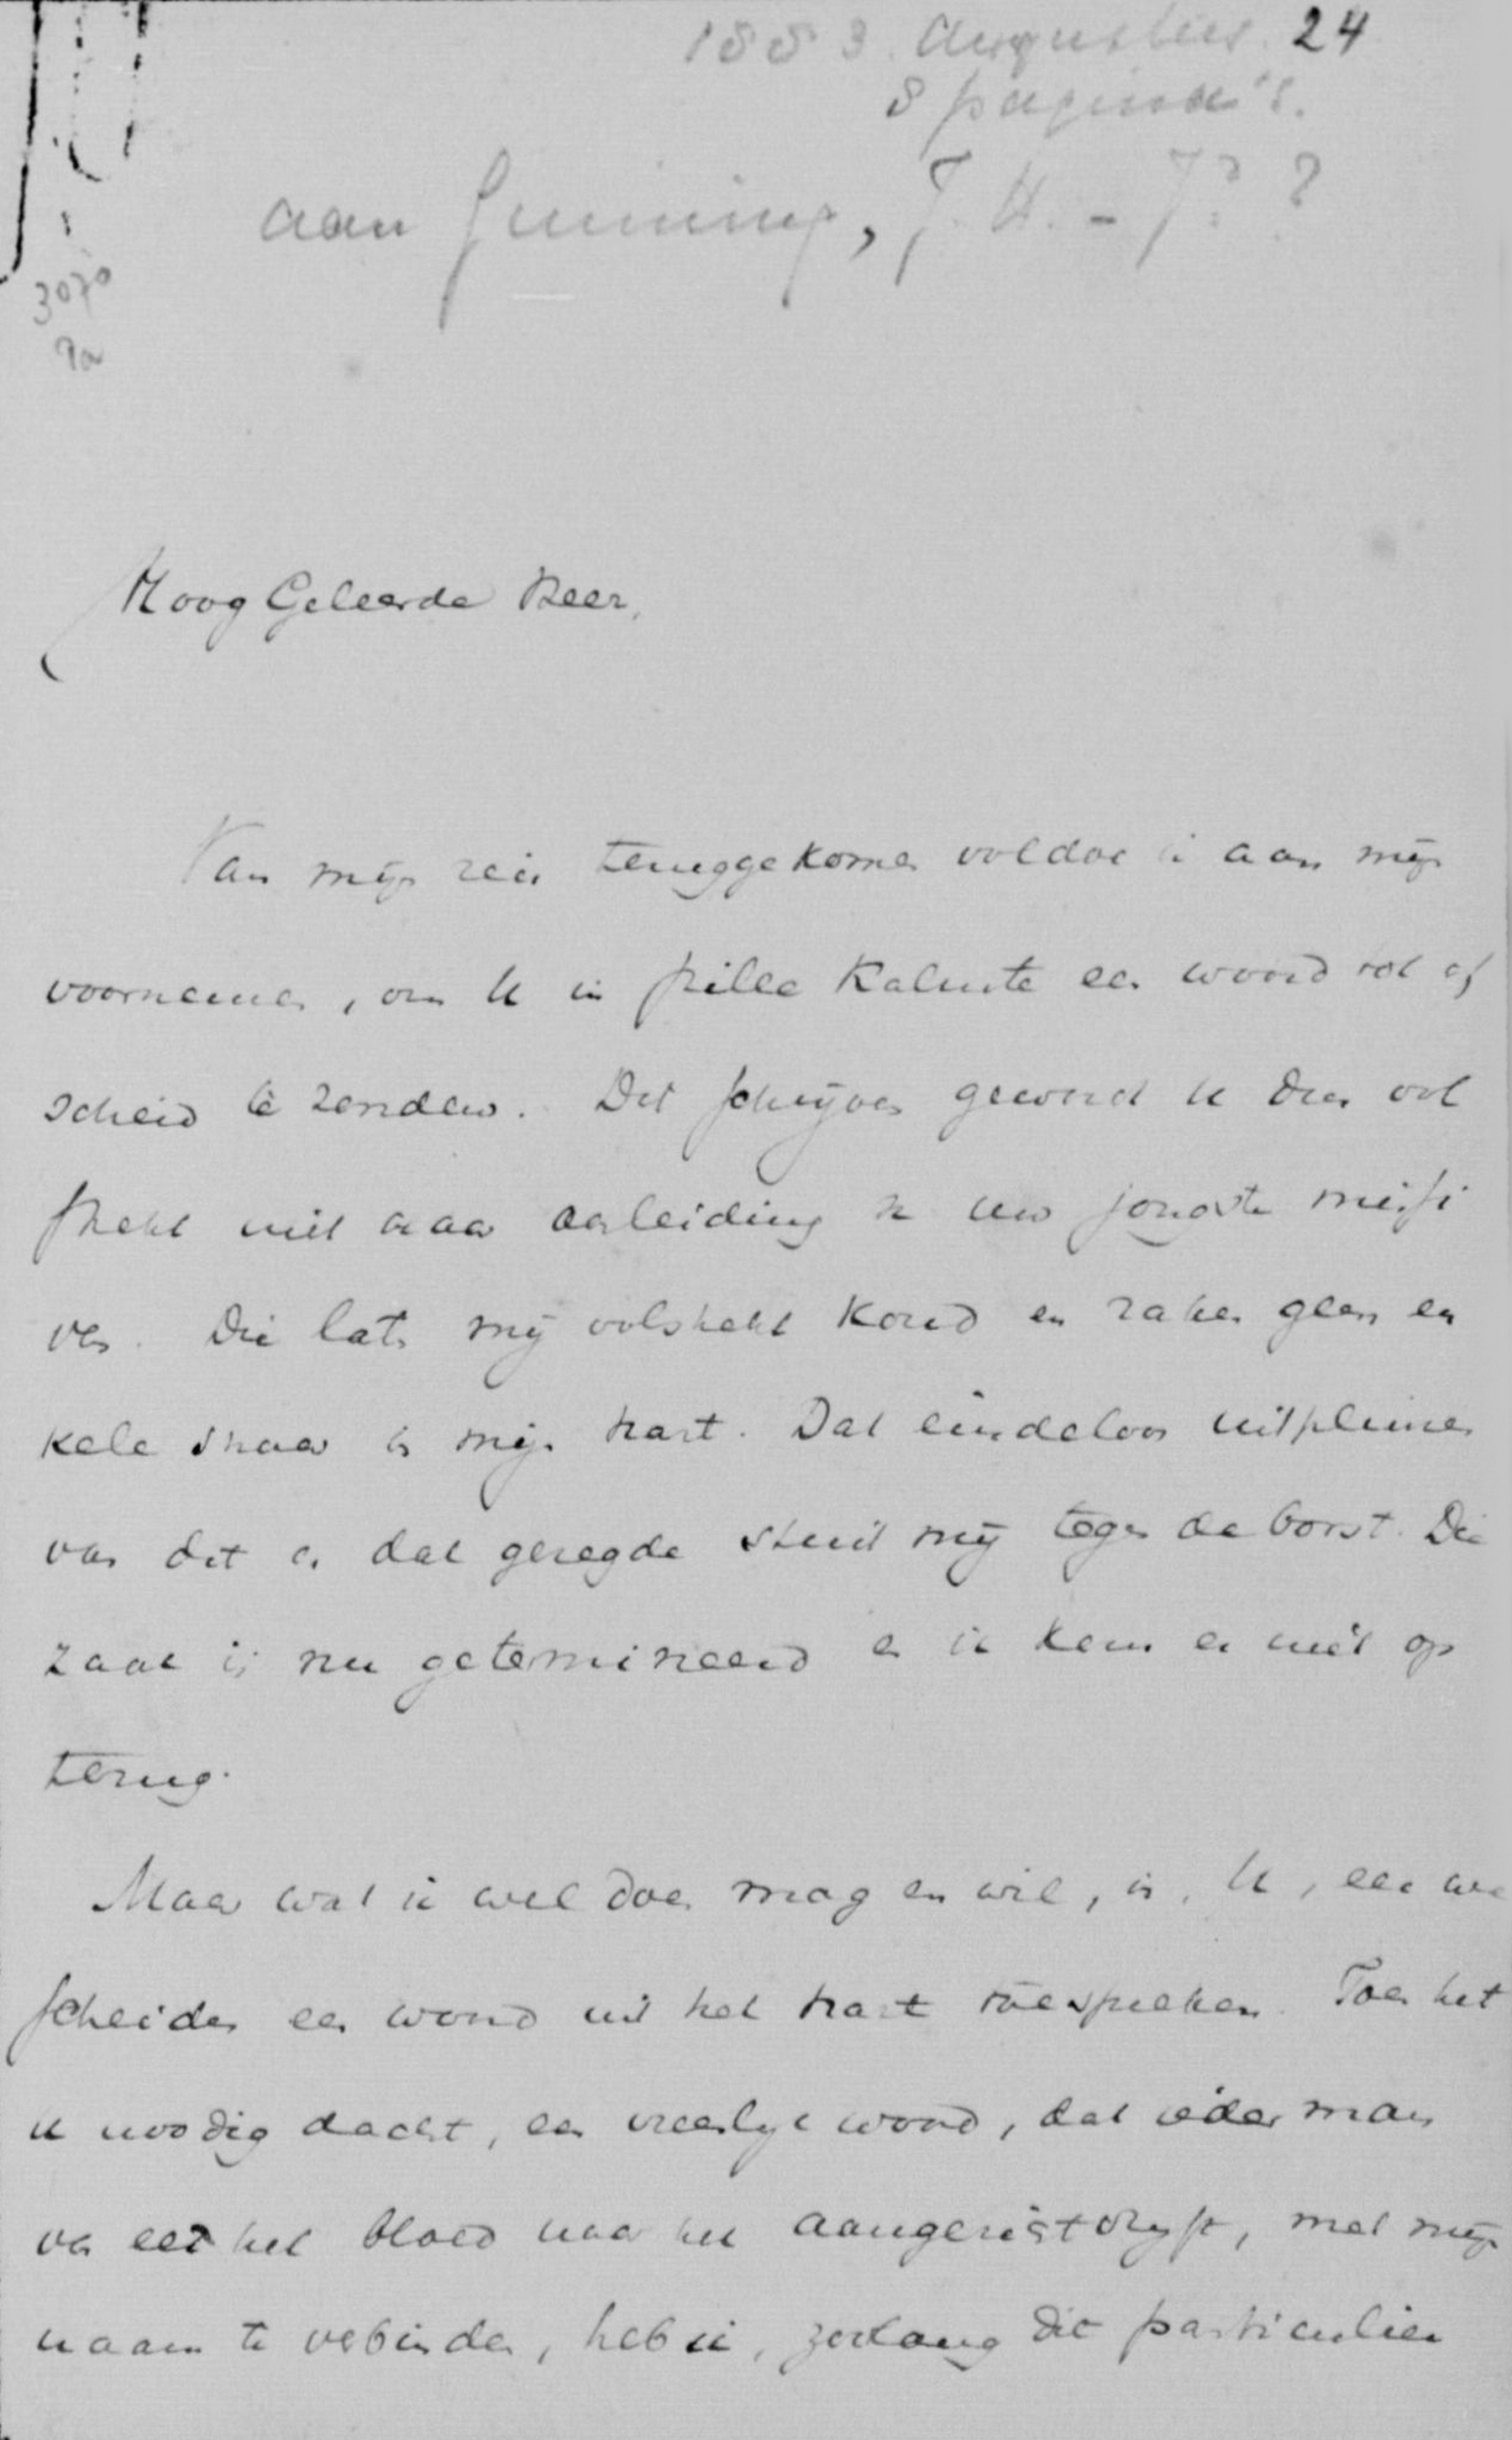 1883. Augustus. 24
8 pagina's.
aan Gunning, J.H. - Jr. ?
3070
9a
Hoog Geleerde Heer,
Van mijn reis teruggekomen voldoe ik aan mijn
voornemen, om U in stille kalmte een woord tot af
scheid te zenden. Dit schrijven geword U dus vol
strekt niet naar aanleiding v uw jongste missi
ves. Die lats mij volstrekt koud en raken geen en
kele snaar in mijn hart. Dat eindeloos uitpluizen
van dit en dat gezegde stuit mij tegen de borst. Die
zaak is nu getermineerd en ik kom er niet op
terug.
Maar wat ik wel doen mag en wil, is, U, eer we
scheiden een woord uit het hart toespreken. Toen het
U noodig dacht, een vreeslijk woord, dat ieder man
van eer het bloed naar het aangezicht drijft, met mijn
naam te verbinden, heb ik, zoolang dit particulier